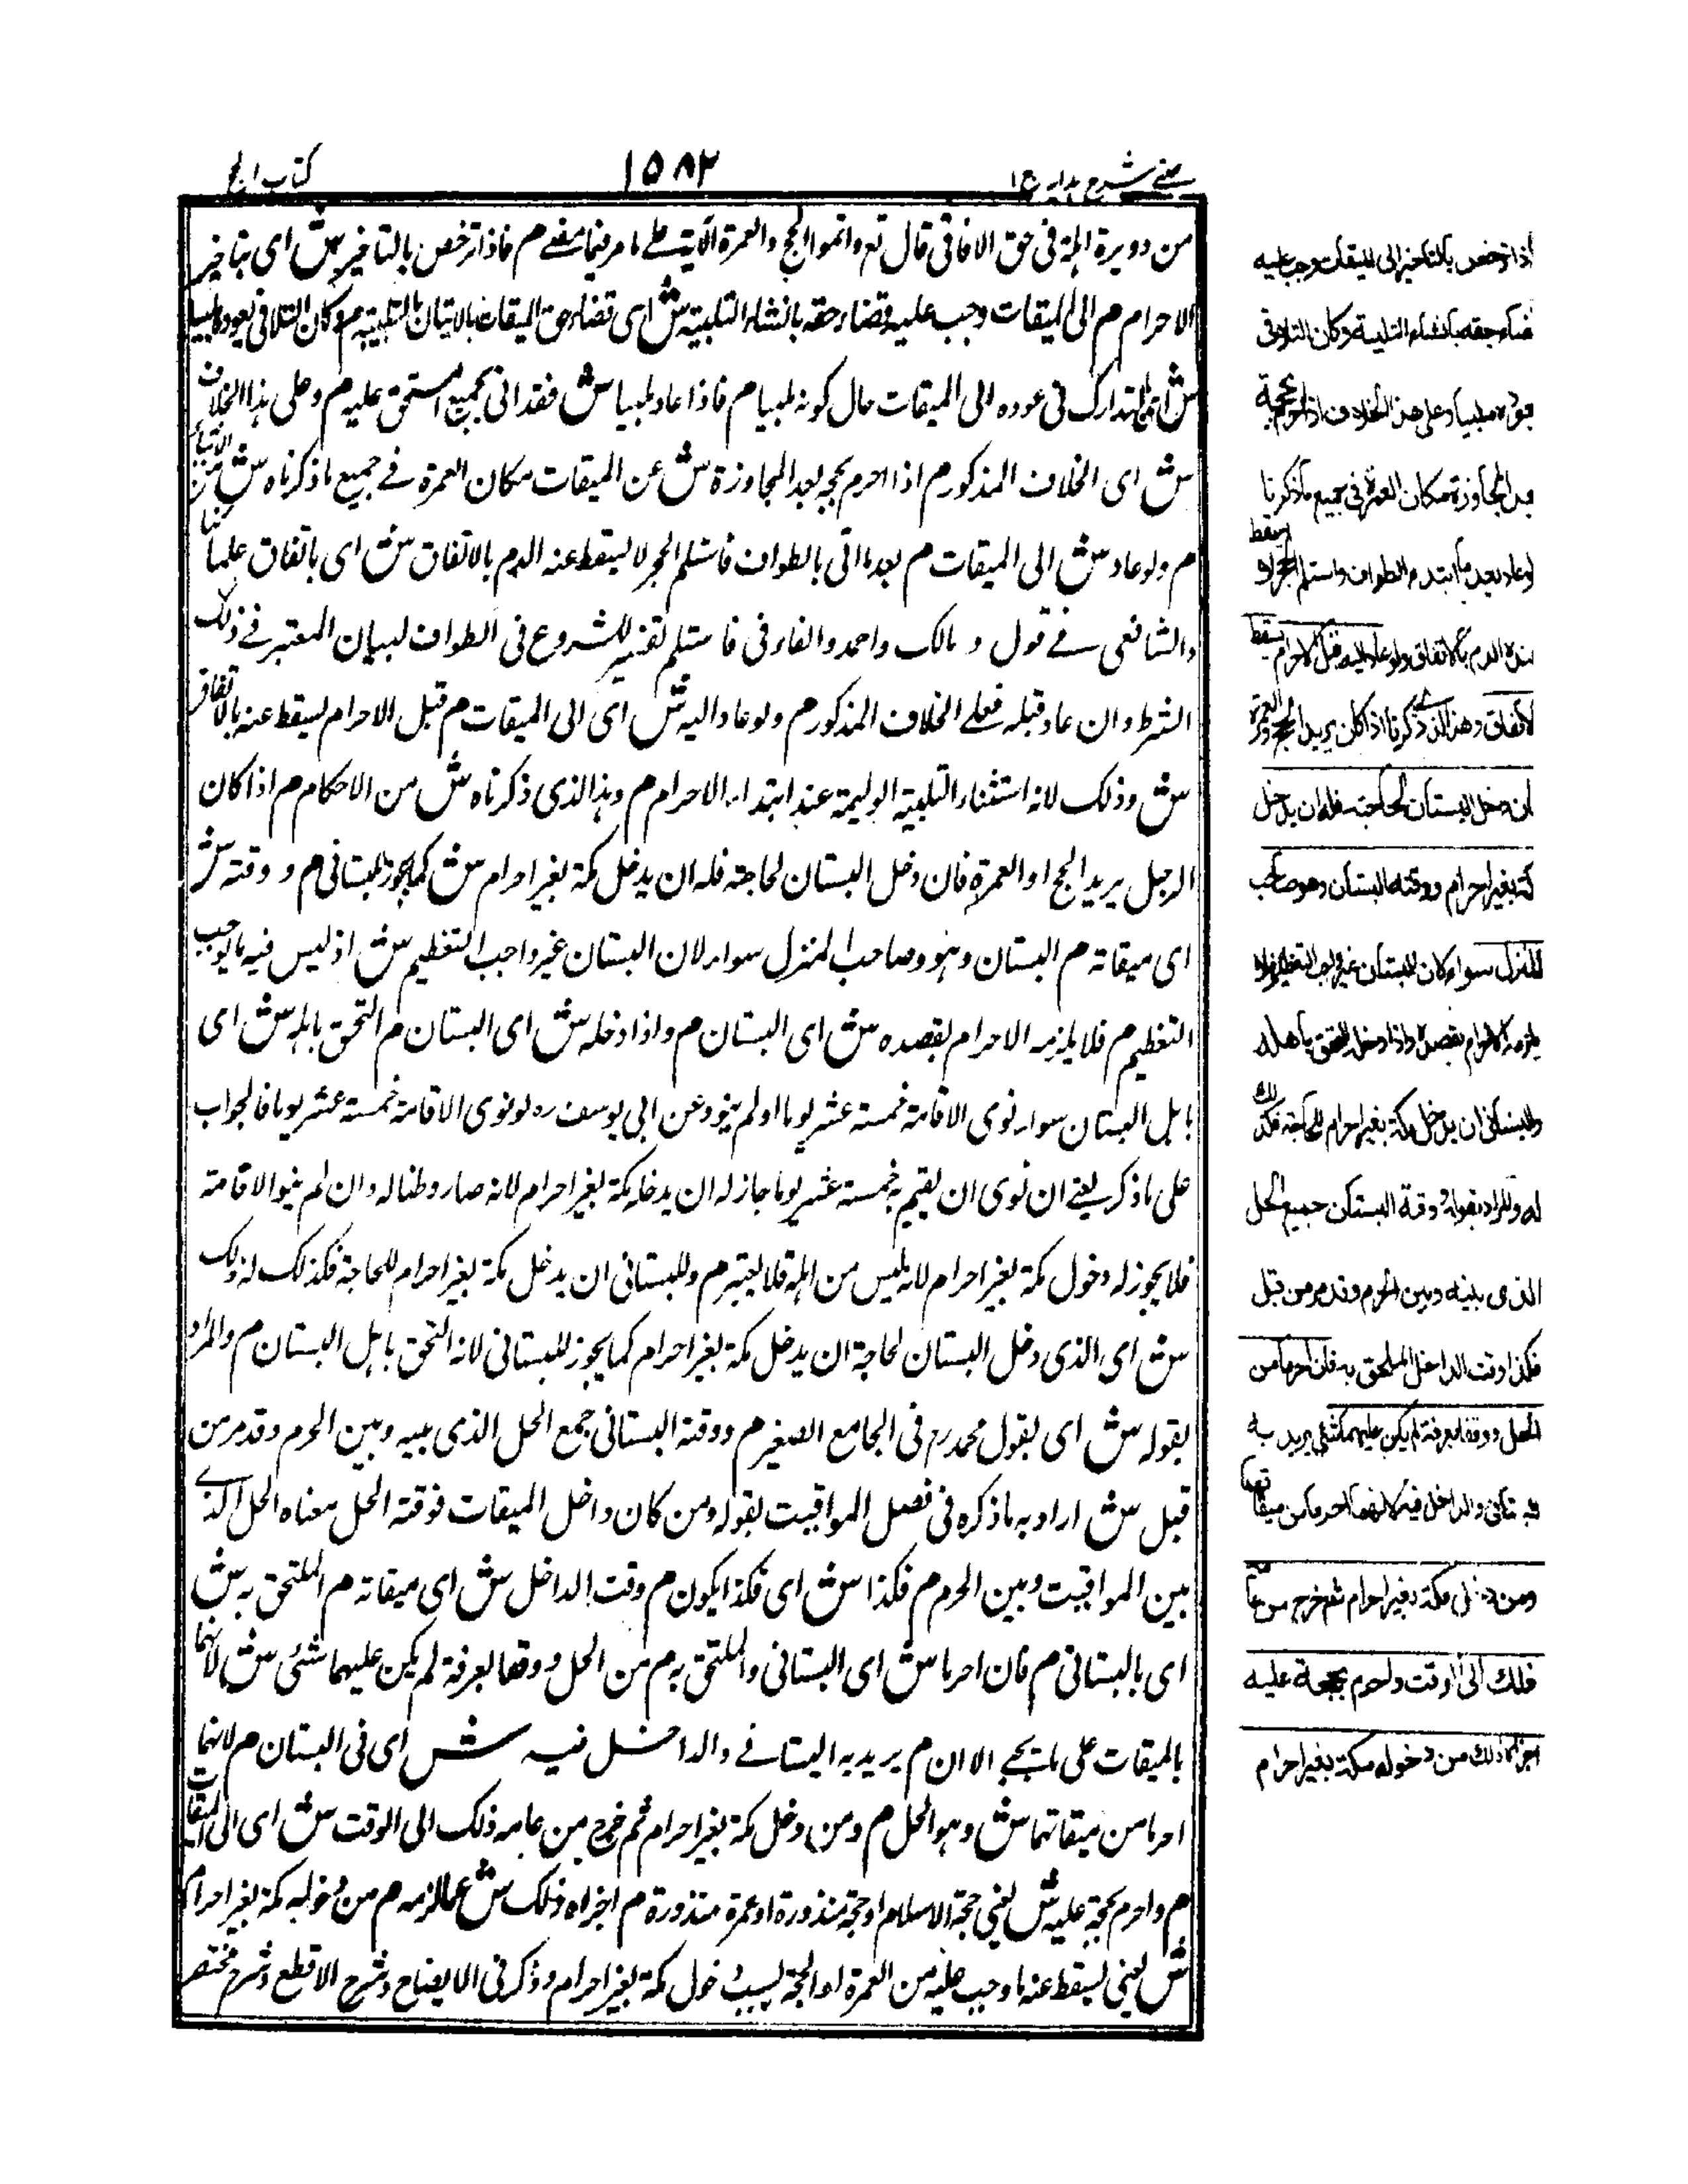 عینی شرح ہدایہ ج ١
١٥٨٢
کتاب الحج
من دویرة اہلہ فی حق الافاقی قال تع واتموا الحج والعمرة الآیة علی ما مر فیما مضے م فاذا ترخص بالتاخیر ش ای بتاخیر
الاحرام م الی المیقات وجب علیہ قضاء حقہ بانشاء التلبیة ش ای قضاء حق المیقات بالاتیان بالتلبیة م وکان التلافی بعودہ ملبیا
ش ای التدارک فی عودہ الی المیقات حال کونہ ملبیا م فاذا عاد ملبیا ش فقد اتی بجمیع المستحق علیہ م وعلی ہذا الخلاف
ش ای الخلاف المذکور م اذا احرم بحجة بعد المجاوزة ش عن المیقات مکان العمرة فے جمیع ما ذکرناہ ش من
م ولو عاد ش الی المیقات م بعد ما اتی بالطواف فاستلم الحجر لا یسقط عنہ الدم بالاتفاق ش ای باتفاق علمائنا
والشافعی فے قول و مالک واحمد والفاء فی فاستلم تفسیر للشروع فی الطواف لبیان المعتبر فے ذلک
الشرط وان عاد قبلہ فعلے الخلاف المذکور م ولو عاد الیہ ش ای الی المیقات م قبل الاحرام یسقط عنہ بالاتفاق
ش وذلک لانہ استثناء التلبیة الولیمة عند ابتداء الاحرام م وہذا الذی ذکرناہ ش من الاحکام م اذا کان
الرجل یرید الحج او العمرة فان دخل البستان لحاجتہ فلہ ان یدخل مکة بغیر احرام ش کما یجوز للبستانی م و وقتہ ش
ای میقاتہ م البستان وہو وصاحب المنزل سواء لان البستان غیر واجب التعظیم ش اذ لیس فیہ ما یوجب
التعظیم م فلا یلزمہ الاحرام بقصدہ ش ای البستان م واذا دخلہ ش ای البستان م التحق باہلہ ش ای
باہل البستان سواء نوی الاقامة خمسة عشر یوما او لم ینو وعن ابی یوسف رہ لو نوی الاقامة خمسة عشر یوما فالجواب
علی ما ذکر یعنے ان نوی ان یقیم بہ خمسة عشر یوما جاز لہ ان یدخل مکة بغیر احرام لانہ صار وطنا لہ وان لم ینو الاقامة
فلا یجوز لہ دخول مکة بغیر احرام لانہ لیس من اہلہ فلا یعتبر م وللبستانی ان یدخل مکة بغیر احرام للحاجة فکذلک لہ ذلک
ش ای الذی دخل البستان لحاجة ان یدخل مکة بغیر احرام کما یجوز للبستانی لانہ التحق باہل البستان م والمراد
بقولہ ش ای بقول محمد رہ فی الجامع الصغیر م ووقتہ البستانی جمیع الحل الذی بینہ وبین الحرم وقد مر من
قبل ش اراد بہ ما ذکرہ فی فصل المواقیت بقولہ ومن کان داخل المیقات فوقتہ الحل معناہ الحل الذے
بین المواقیت وبین الحرم م فکذا ش ای فکذا یکون م وقت الداخل ش ای میقاتہ م الملتحق بہ ش
ای بالبستانی م فان احرما ش ای البستانی والملتحق بہ م من الحل ووقفا بعرفة لم یکن علیہما شئی ش لانہما
بالمیقات علی ما یجے الا ان م یرید بہ البستانے والداخل فیہ ش ای فی البستان م لانہما
احرما من میقاتہما ش وہو الحل م ومن دخل مکة بغیر احرام ثم خرج من عامہ ذلک الی الوقت ش ای الی المیقات
م واحرم بحجة علیہ ش یعنی حجة الاسلام او حجة منذورة او عمرة منذورة م اجزاہ ذلک ش عما لزمہ م من دخولہ مکة بغیر احرام
ش یعنی یسقط عنہ ما وجب علیہ من العمرة او الحجة بسبب دخول مکة بغیر احرام وذکر فی الایضاح وشرح الاقطع وشرح مختصر
اذا ترخص بالتاخیر الی المیقات وجب علیہ
قضاء حقہ بانشاء التلبیة وکان التلافی
بعودہ ملبیا وعلی ہذا الخلاف اذا احرم بحجة
بعد المجاوزة مکان العمرة فی جمیع ما ذکرنا
لو عاد بعد ما ابتدء الطواف واستلم الحجر لا یسقط
عنہ الدم بالاتفاق ولو عاد الیہ قبل الاحرام یسقط
بالاتفاق وھذا الذی ذکرنا اذا کان یرید الحج والعمرة
فان دخل البستان لحاجتہ فلہ ان یدخل
مکة بغیر احرام ووقتہ البستان وھو صاحب
المنزل سواء لان البستان غیر واجب التعظیم فلا
یلزمہ الاحرام بقصدہ واذا دخلہ التحق باھلہ
وللبستانی ان یدخل مکة بغیر احرام للحاجة فکذلک
لہ والمراد بقولہ ووقتہ البستان جمیع الحل
الذی بینہ وبین الحرم وقد مر من قبل
فکذا وقت الداخل الملحق بہ فان احرما من
الحل ووقفا بعرفة لم یکن علیہما شئی یرید بہ
البستانی والداخل فیہ لانھما احرما من میقاتھما
ومن دخل مکة بغیر احرام ثم خرج من عامہ
ذلک الی الوقت واحرم بحجة علیہ
اجزاہ ذلک من دخولہ مکة بغیر احرام